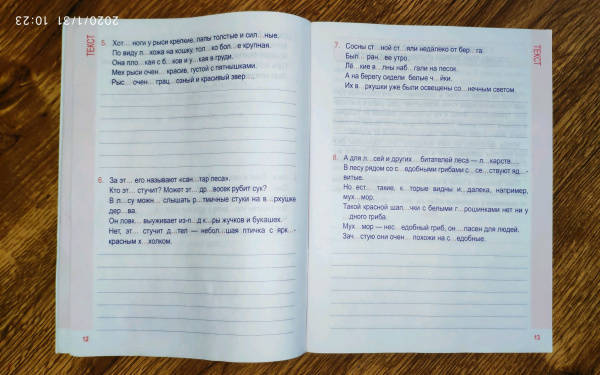 2020/1/31 10:23
ТЕКСТ
5. Хот... ноги у рыси крепкие, лапы толстые и сил...ные.
По виду л...кожа на кошку, тол...ко бол...е крупная.
Она пло...кая с б...ков и у...кая в груди.
Мех рыси очен... красив, густой с пятнышками.
Рыс... очен... грац...озный и красивый звер...
6. За эт... его называют «сан...тар леса».
Кто эт... стучит? Может эт... др...восек рубит сук?
В л...су можн... слышать р...тмичные стуки на в...рхушке
дер...ва.
Он ловк... выуживает из-п...д к...ры жучков и букашек.
Нет, эт... стучит д...тел — небол...шая птичка с ярк...-
красным х...холком.
12
ТЕКСТ
7. Сосны ст...ной ст...яли недалеко от бер...га.
Был... ран...ее утро.
Лё...кие в...лны наб...гали на песок.
А на берегу сидели белые ч...йки.
Их в...ркушки уже были освещены со...нечным светом.
8. А для л...сей и других ...битателей леса — л...карств...
В лесу рядом со с...едобными грибами с...се...ствуют яд...-
витые.
Но ест... такие, к...торые видны и...далека, например,
мух...мор.
Такой красной шап...чки с белыми г...рошинками нет ни у
...дного гриба.
Мух...мор — нес...едобный гриб, он...пасен для людей.
Зач...стую они очен... похожи на с...едобные.
13